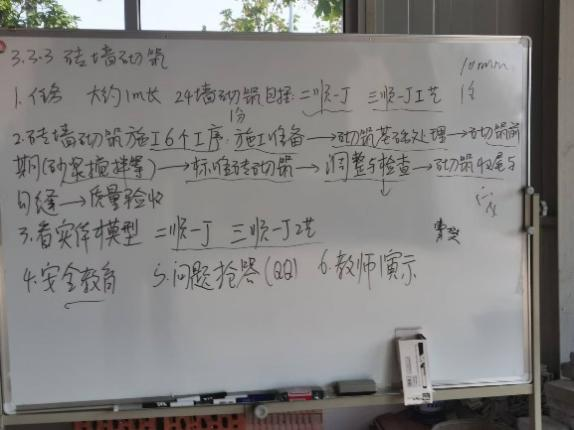 3.3.3 砖墙砌筑
10mm
1.任务 大约1m长 24墙砌筑自择:二顺一丁 三顺一丁工艺
2.砖墙砌筑施工6个工序:施工准备→砌筑基础处理→砌筑前
期(砂浆搅拌等)→标准砖砌筑→调整与检查→砌筑收尾与
勾缝→质量验收
3.看实体模型 二顺一丁 三顺一丁工艺
4.安全教育 5.问题抢答(QQ) 6.教师演示